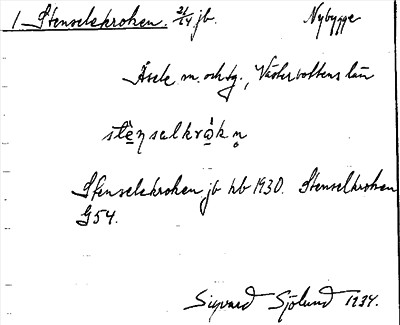 1 Stenselekroken. 21/54 jb. Nybygge
Åsele m. och tg., Västerbottens län
stèn̩salkrò̩kn̥
Stenselekroken jb hb 1930. Stenselkroken
G54.
Sigvard Sjölund 1934.